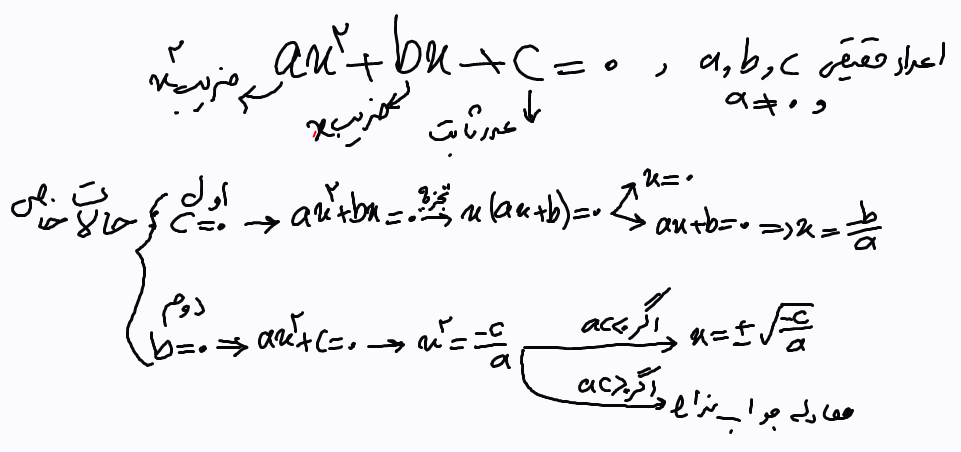 ax² + bx + c = ۰ , a, b, c اعداد حقیقی
و a ≠ ۰
ضریب x²
ضریب x
عدد ثابت
حالات خاص
اول
c = ۰ → ax² + bx = ۰ تجزیه → x(ax + b) = ۰
x = ۰
ax + b = ۰ => x = b/a
دوم
b = ۰ => ax² + c = ۰ → x² = -c/a
اگر ac<۰ → x = ± √(-c/a)
اگر ac>۰ → معادله جواب ندارد